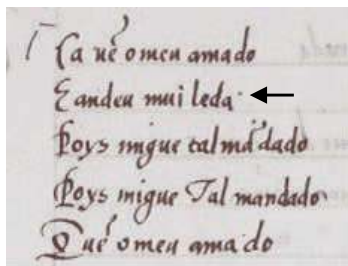 Ca uẽ o meu amado
E andeu mui leda
Poys migue tal mã dado
Poys migue Tal mandado
Q̃ uẽ o meu ama do